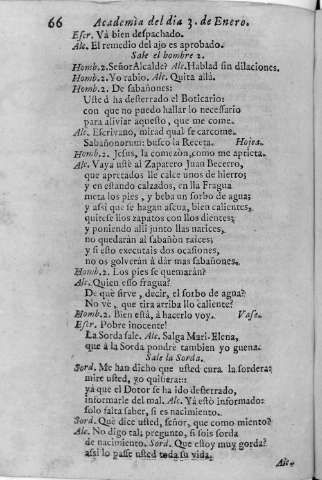 66 Academia del dia 3. de Enero.
Escr. Và bien despachado.
Alc. El remedio del ajo es aprobado.
Sale el hombre 2.
Homb.2. Señor Alcalde? Alc. Hablad sin dilaciones.
Homb.2. Yo rabio. Alc. Quita allá.
Homb.2. De sabañones:
Usted ha desterrado el Boticario:
con que no puedo hallar lo necessario
para aliviar aquesto, que me come.
Alc. Escrivano, mirad qual se carcome.
Sabañonorum: busco la Receta. Hojea.
Homb.2. Jesus, la comezòn, como me aprieta.
Alc. Vaya usté al Zapatero Juan Becerro,
que apretados lle calce unos de hierro;
y en estando calzados, en lla Fragua
meta los pies, y beba un sorbo de agua;
y assi que se hagan ascua, bien calientes,
quitese llos zapatos con llos dientes;
y poniendo alli junto llas narices,
no quedarán al sabañòn raíces;
y si esto executais dos ocasiones,
no os golverán á dár mas sabañones.
Homb.2. Los pies se quemarán?
Alc. Quien esso fragua?
De què sirve, decir, el sorbo de agua?
No vè, que tira arriba llo caliente?
Homb.2. Bien está, á hacerlo voy. Vase.
Escr. Pobre inocente!
La Sorda sale. Alc. Salga Mari-Elena,
que á la Sorda pondrè tambien yo guena.
Sale la Sorda.
Sord. Me han dicho que usted cura la sordera:
mire usted, yo quisiera::
yá que el Dotor se ha ido desterrado,
informarle del mal. Alc. Yá estò informado:
solo falta saber, si es nacimiento.
Sord. Què dice usted, señor, que como miento?
Alc. No digo tal; pregunto, si sois sorda
de nacimiento. Sord. Que estoy muy gorda?
assi lo passe usted toda su vida.
Alc.